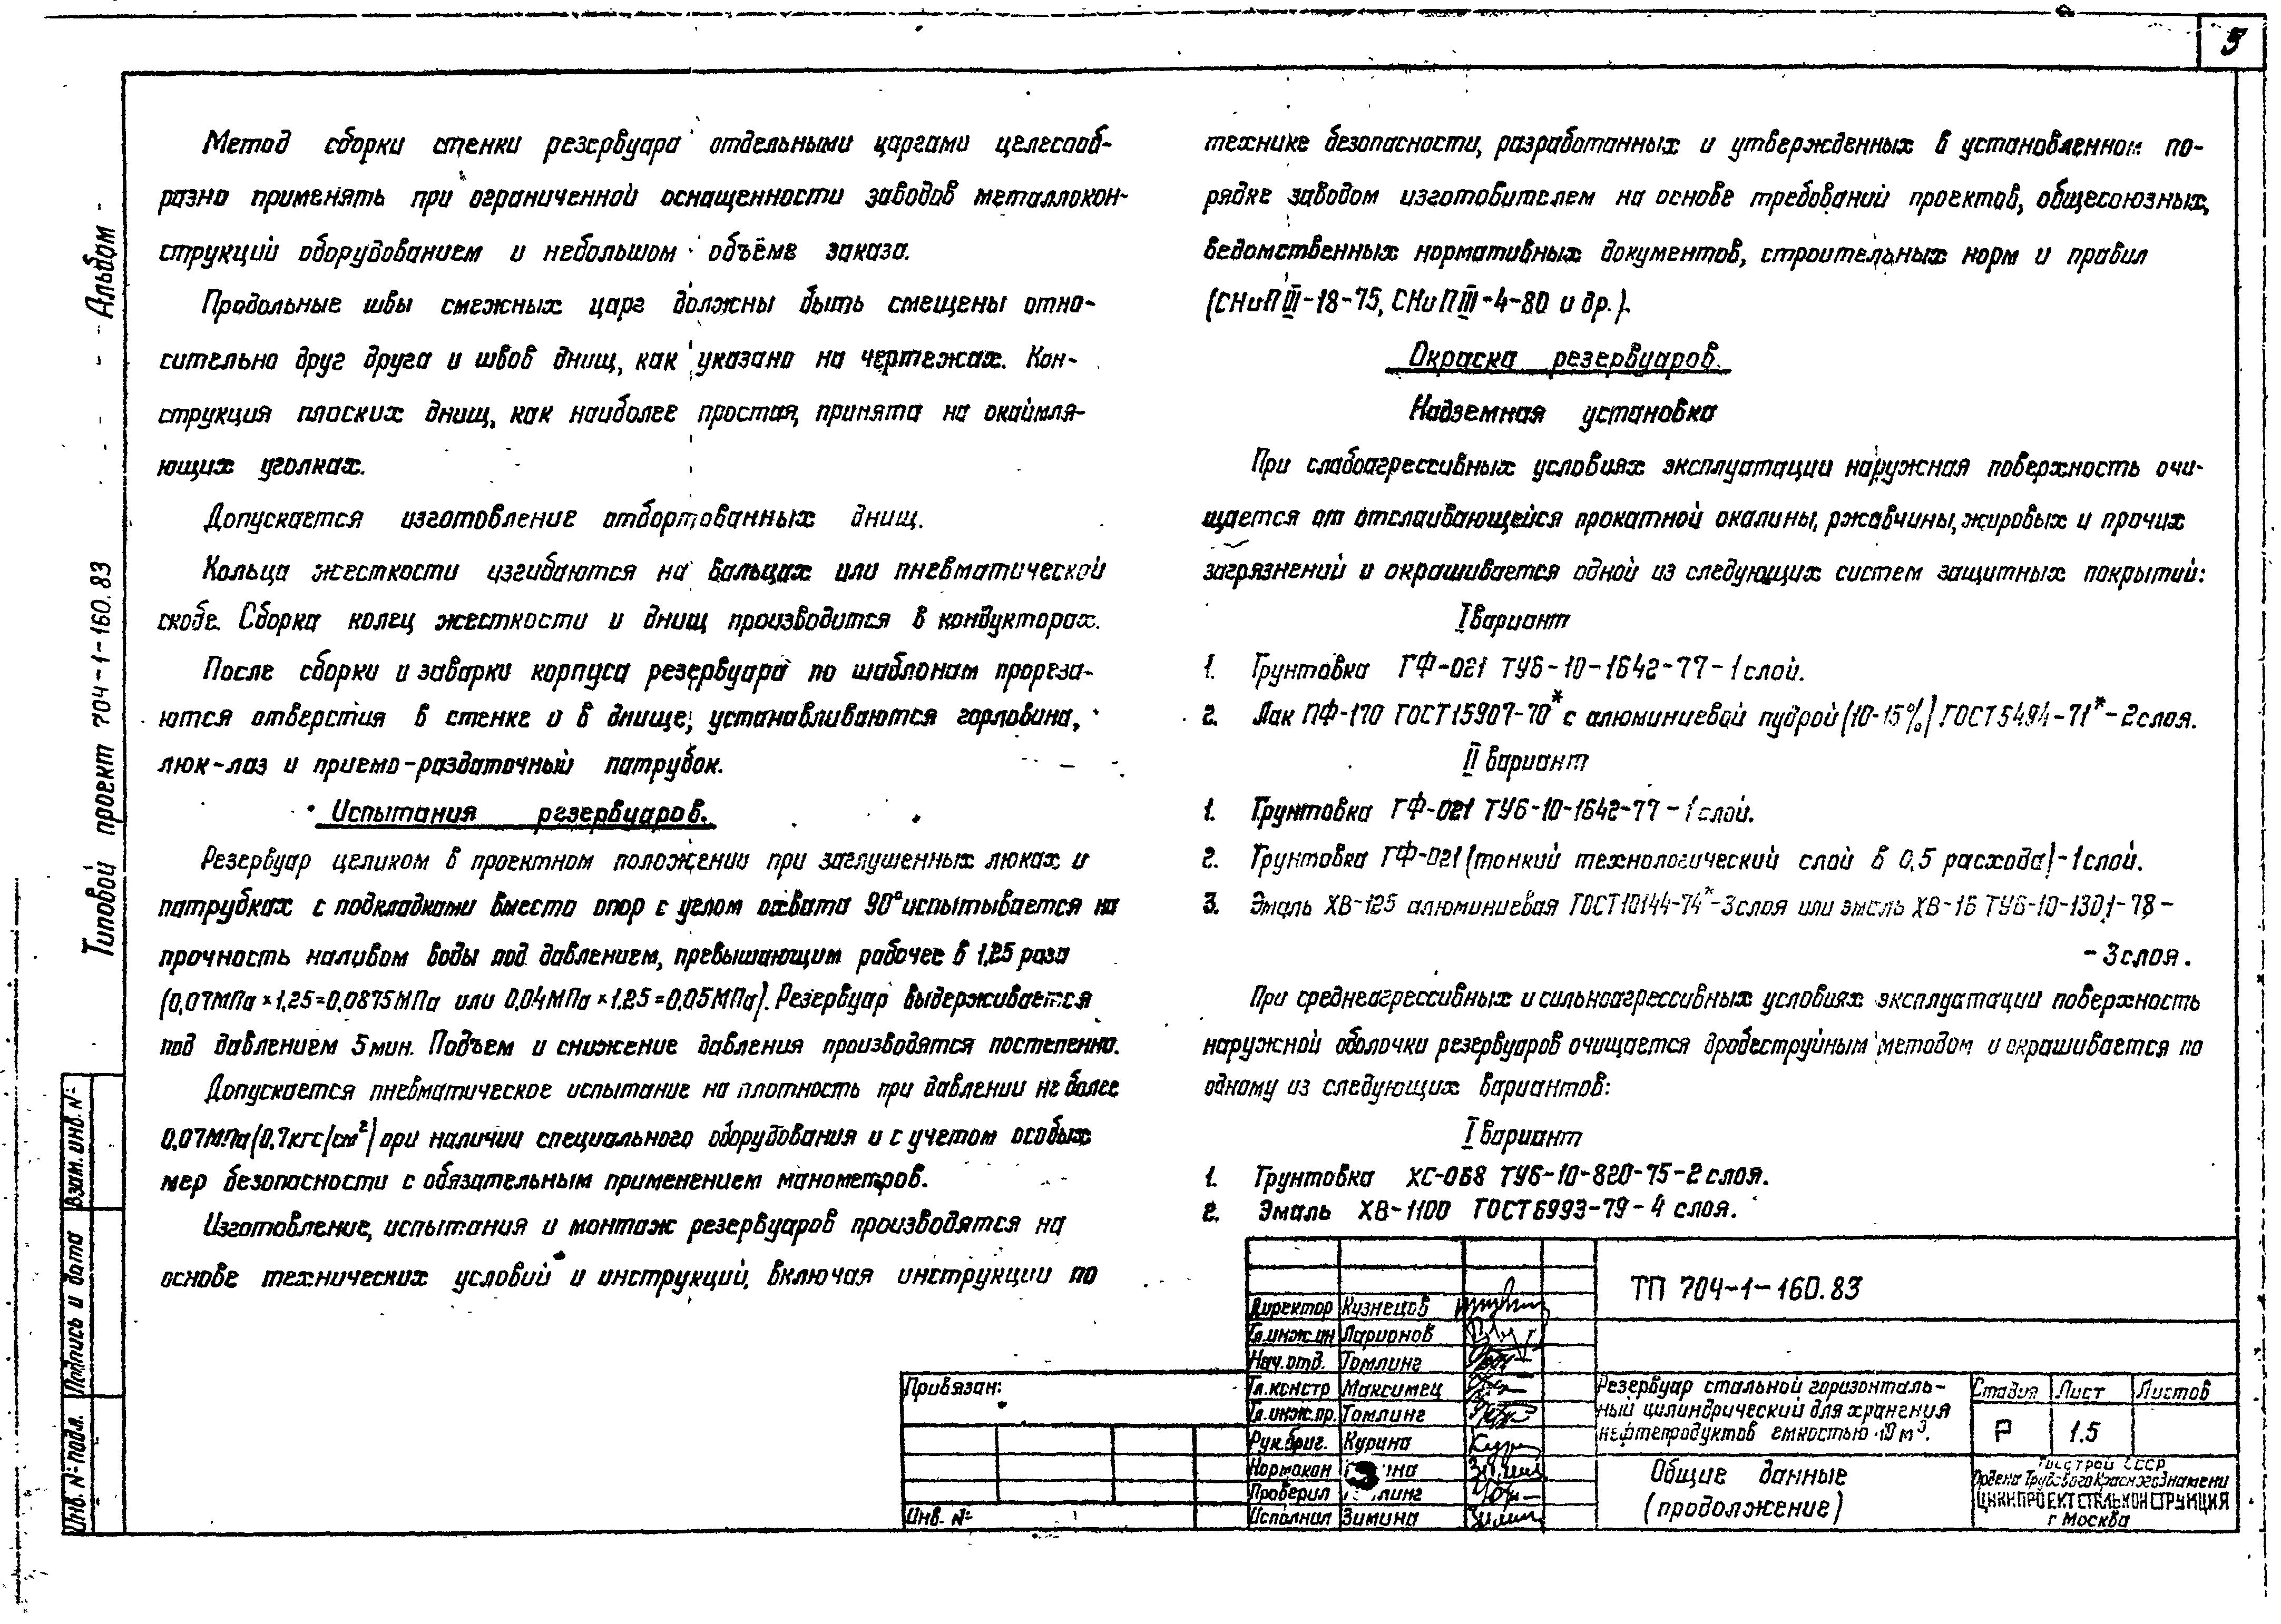 5
Альбом
Типовой проект 704-1-160.83
Метод сборки стенки резервуара отдельными царгами целесооб-
разно применять при ограниченной оснащенности заводов металлокон-
струкций оборудованием и небольшом объёме заказа.
Продольные швы смежных царг должны быть смещены отно-
сительно друг друга и швов днищ, как указано на чертежах. Кон-
струкция плоских днищ, как наиболее простая, принята на окаймля-
ющих уголках.
Допускается изготовление отбортованных днищ.
Кольца жесткости изгибаются на вальцах или пневматической
скобе. Сборка колец жесткости и днищ производится в кондукторах.
После сборки и заварки корпуса резервуара по шаблонам прореза-
ются отверстия в стенке и в днище, устанавливаются горловина,
люк-лаз и приемо-раздаточный патрубок.
Испытания резервуаров.
Резервуар целиком в проектном положении при заглушенных люках и
патрубках с подкладками вместо опор с углом охвата 90° испытывается на
прочность наливом воды под давлением, превышающим рабочее в 1,25 раза
(0,07МПа × 1,25 = 0,0875МПа или 0,04МПа × 1,25 = 0,05МПа). Резервуар выдерживается
под давлением 5 мин. Подъем и снижение давления производятся постепенно.
Допускается пневматическое испытание на плотность при давлении не более
0,07МПа (0,7кгс/см²) при наличии специального оборудования и с учетом особых
мер безопасности с обязательным применением манометров.
Изготовление, испытания и монтаж резервуаров производятся на
основе технических условий и инструкций, включая инструкции по
технике безопасности, разработанных и утвержденных в установленном по-
рядке заводом изготовителем на основе требований проектов, общесоюзных,
ведомственных нормативных документов, строительных норм и правил
(СНиП III-18-75, СНиП III-4-80 и др.).
Окраска резервуаров.
Надземная установка
При слабоагрессивных условиях эксплуатации наружная поверхность очи-
щается от отслаивающейся прокатной окалины, ржавчины, жировых и прочих
загрязнений и окрашивается одной из следующих систем защитных покрытий:
I вариант
1. Грунтовка ГФ-021 ТУ6-10-1642-77-1 слой.
2. Лак ПФ-170 ГОСТ 15907-70* с алюминиевой пудрой (10-15%) ГОСТ 5494-71*-2 слоя.
II вариант
1. Грунтовка ГФ-021 ТУ6-10-1642-77-1 слой.
2. Грунтовка ГФ-021 (тонкий технологический слой в 0,5 расхода)-1 слой.
3. Эмаль ХВ-125 алюминиевая ГОСТ 10144-74*-3 слоя или эмаль ХВ-16 ТУ6-10-1301-78-
-3 слоя.
При среднеагрессивных и сильноагрессивных условиях эксплуатации поверхность
наружной оболочки резервуаров очищается дробеструйным методом и окрашивается по
одному из следующих вариантов:
I вариант
1. Грунтовка ХС-068 ТУ6-10-820-75-2 слоя.
2. Эмаль ХВ-1100 ГОСТ 6993-79-4 слоя.
Взам. инв. №
Подпись и дата
Инв. № подл.
Привязан:
Инв. №
Директор Кузнецов
Гл. инж. ин Ларионов
Нач. отд. Томлинг
Гл. констр Максимец
Гл. инж. пр. Томлинг
Рук. бриг. Курина
Нормокон
Проверил
Исполнил Зимина
ТП 704-1-160.83
Резервуар стальной горизонталь-
ный цилиндрический для хранения
нефтепродуктов емкостью 10 м³.
Стадия Лист Листов
Р 1.5
Общие данные
(продолжение)
Госстрой СССР
Ордена Трудового Красного Знамени
ЦНИИПРОЕКТСТАЛЬКОНСТРУКЦИЯ
г Москва